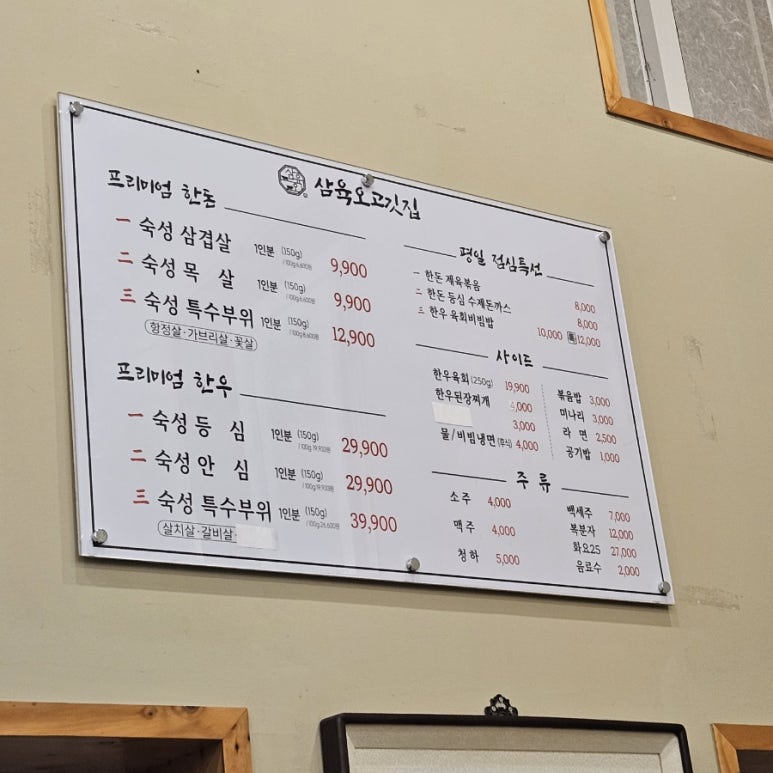 삼육오고깃집
프리미엄 한돈
一 숙성 삼겹살 1인분 (150g) /100g 6,600원 9,900
二 숙성 목 살 1인분 (150g) /100g 6,600원 9,900
三 숙성 특수부위 1인분 (150g) /100g 8,600원 12,900
항정살·가브리살·꽃살
프리미엄 한우
一 숙성 등 심 1인분 (150g) /100g 19,900원 29,900
二 숙성 안 심 1인분 (150g) /100g 19,900원 29,900
三 숙성 특수부위 1인분 (150g) /100g 26,600원 39,900
살치살·갈비살·
평일 점심특선
一 한돈 제육볶음 8,000
二 한돈 등심 수제돈까스 8,000
三 한우 육회비빔밥 10,000 特12,000
사이드
한우육회(250g) 19,900
한우된장찌개 ,000
3,000
물/비빔냉면(후식) 4,000
볶음밥 3,000
미나리 3,000
라 면 2,500
공기밥 1,000
주 류
소주 4,000
맥주 4,000
청하 5,000
백세주 7,000
복분자 12,000
화요25 27,000
음료수 2,000